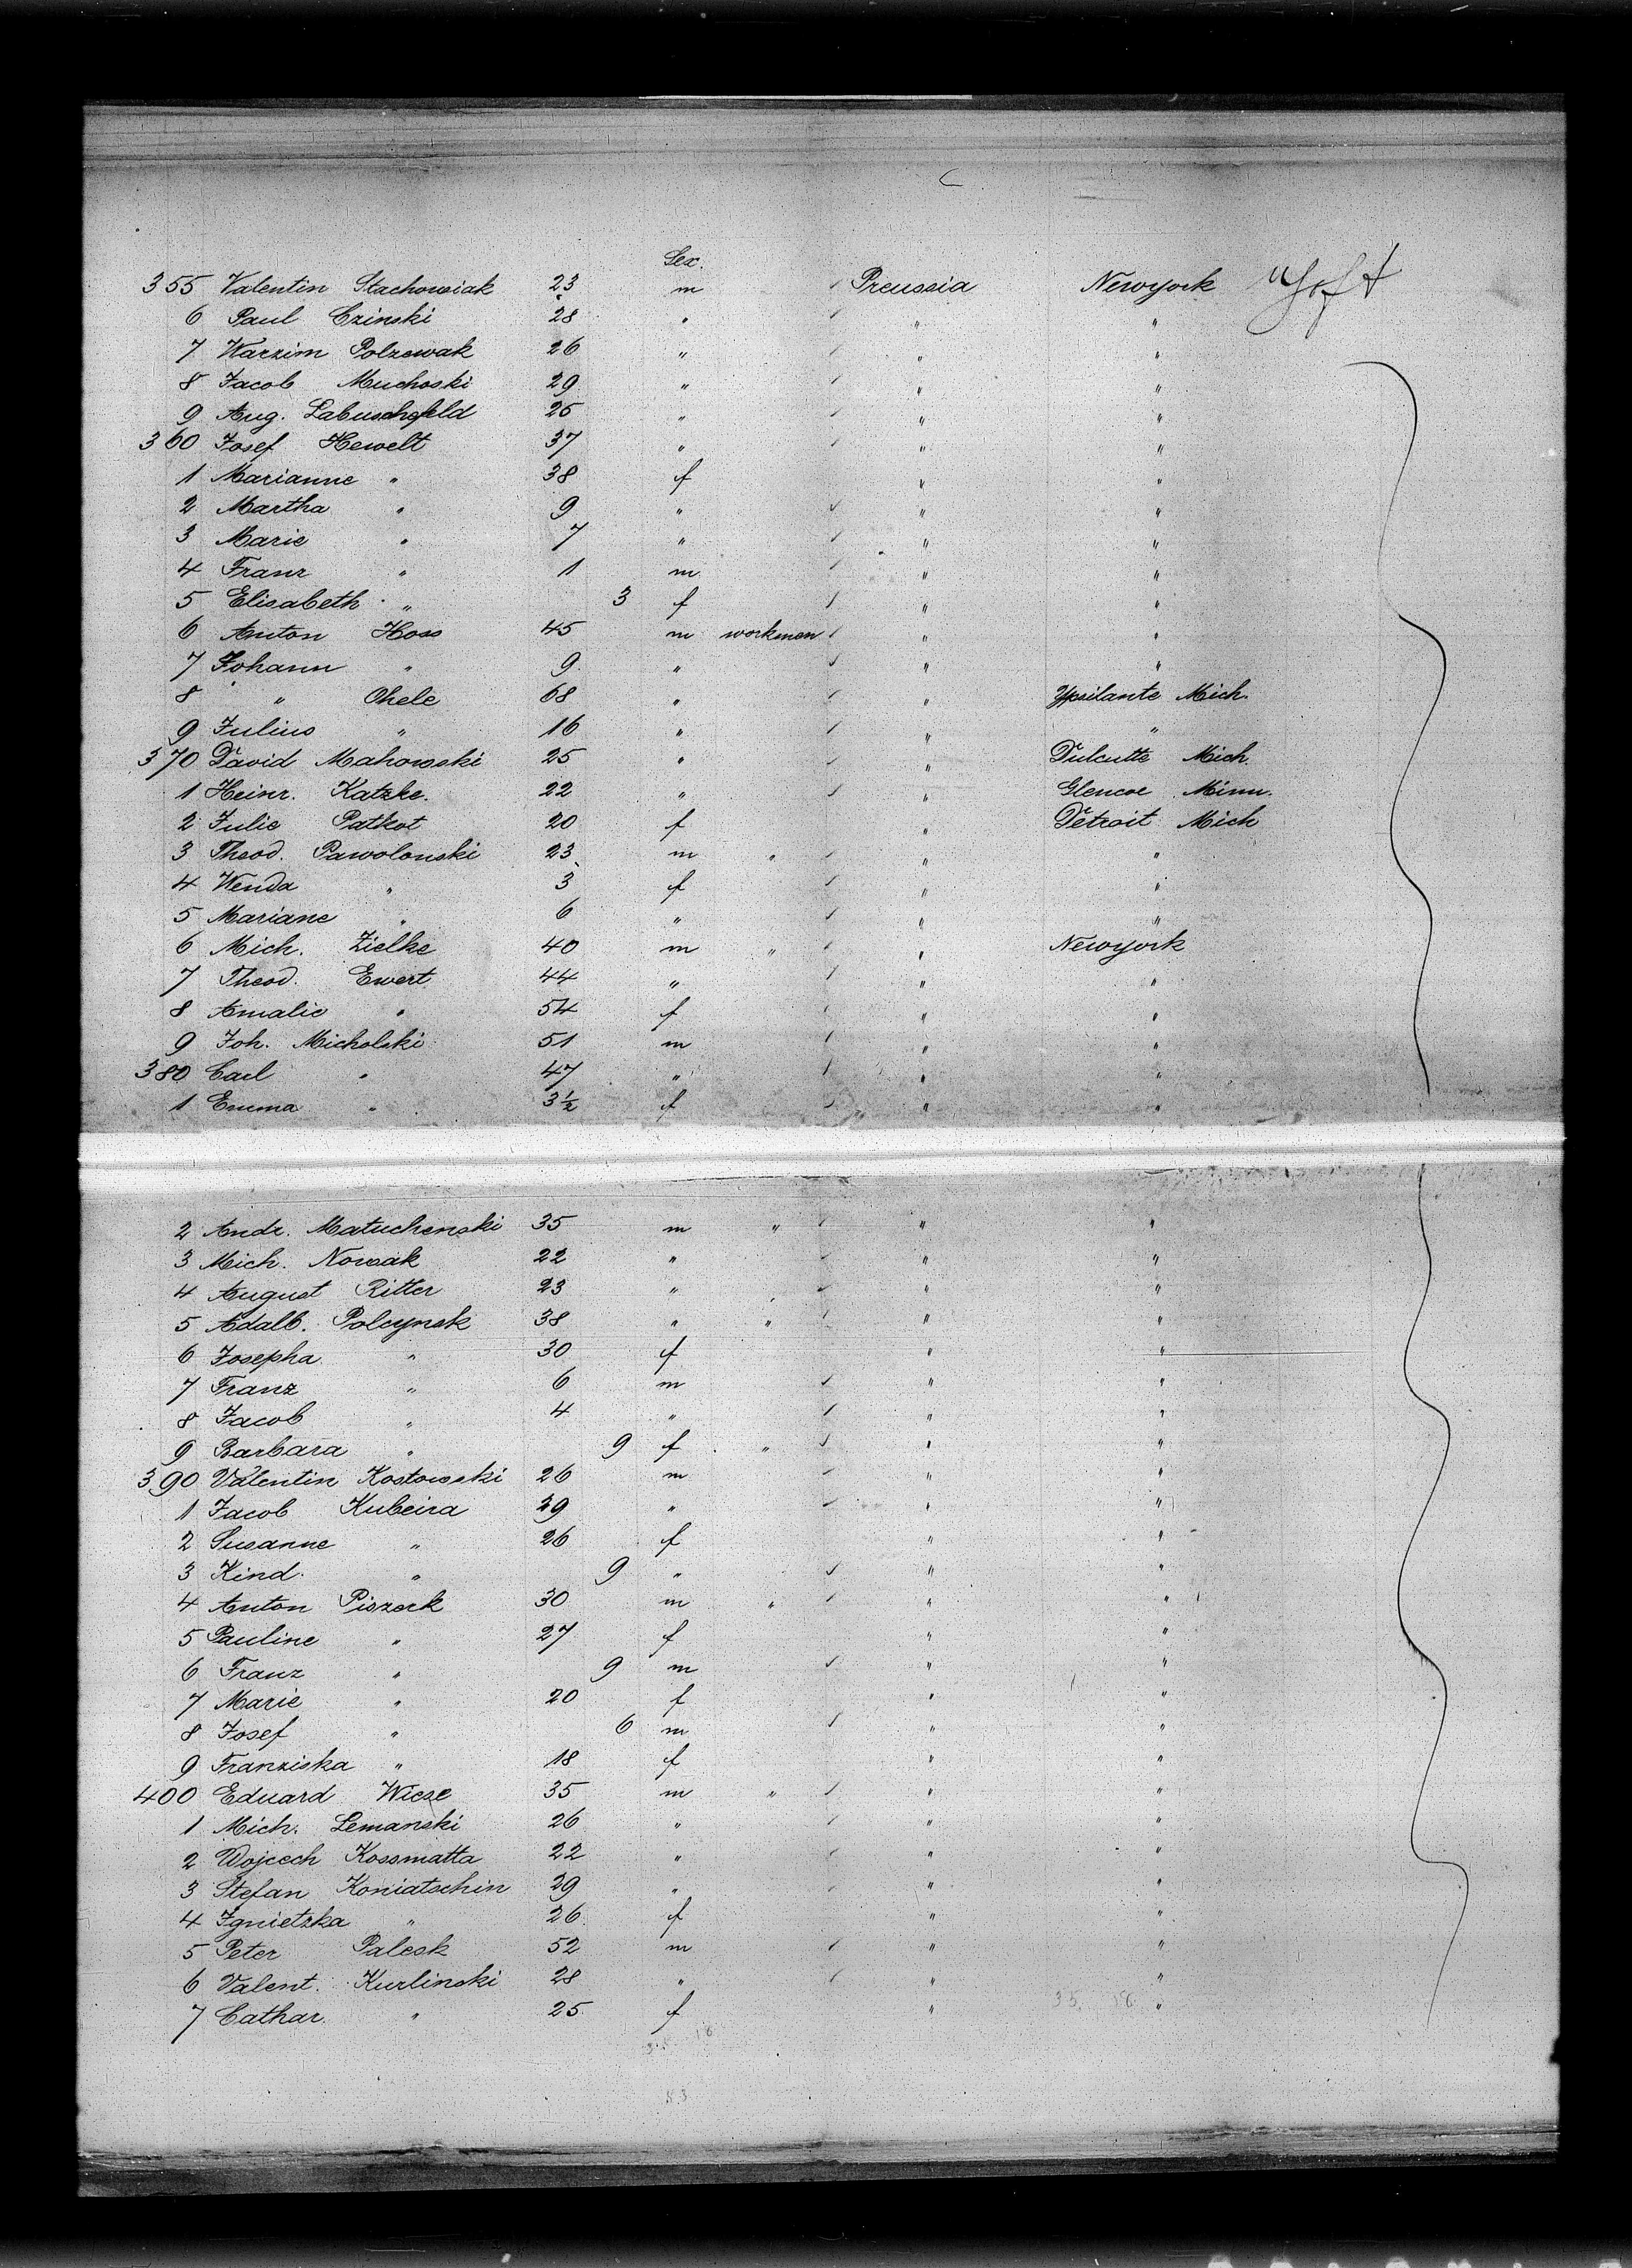 Sex.
355 Valentin Stachowiak 23 m Preussia Newyork
6 Paul Czinski 28 " " "
7 Warzim Polzewak 26 " " "
8 Jacob Muchoski 29 " " "
9 Aug. Labuschefeld 25 " " "
360 Josef Hewelt 37 " " "
1 Marianne " 38 f " "
2 Martha " 9 " " "
3 Marie " 7 " " "
4 Franz " 1 m " "
5 Elisabeth " 3 f " "
6 Anton Hoss 45 m workman " "
7 Johann " 9 " " "
8 " Ohele 68 " " Ypsilante Mich.
9 Julius " 16 " " "
370 David Mahowski 25 " " Dulcutte Mich.
1 Heinr. Katzke. 22 " " Glencoe Minn.
2 Julie Patkot 20 f " Detroit Mich
3 Theod. Pawolonski 23 m " " "
4 Wenda " 3 f " "
5 Mariane " 6 " " "
6 Mich. Zielke 40 m " " Newyork
7 Theod. Ewert 44 " " "
8 Amalie " 54 f " "
9 Joh. Micholski 51 m " "
380 Carl " 47 " " "
1 Emma " 3½ f " "
2 Andr. Matuchenski 35 m " " "
3 Mich. Nowak 22 " " "
4 August Ritter 23 " " "
5 Adalb. Polcynsk 38 " " " "
6 Josepha " 30 f " "
7 Franz " 6 m " "
8 Jacob " 4 " " "
9 Barbara " 9 f " " "
390 Valentin Kostowski 26 m " "
1 Jacob Kubeira 29 " " "
2 Susanne " 26 f " "
3 Kind " 9 " " "
4 Anton Piszerk 30 m " " "
5 Pauline " 27 f " "
6 Franz " 9 m " "
7 Marie " 20 f " "
8 Josef " 6 m " "
9 Franziska " 18 f " "
400 Eduard Wiese 35 m " " "
1 Mich. Lemanski 26 " " "
2 Wojcech Kossmatta 22 " " "
3 Stefan Koniatschin 29 " " "
4 Ignietzka " 26 f " "
5 Peter Palesk 52 m " "
6 Valent. Kurlinski 28 " " "
7 Cathar. " 25 f " "